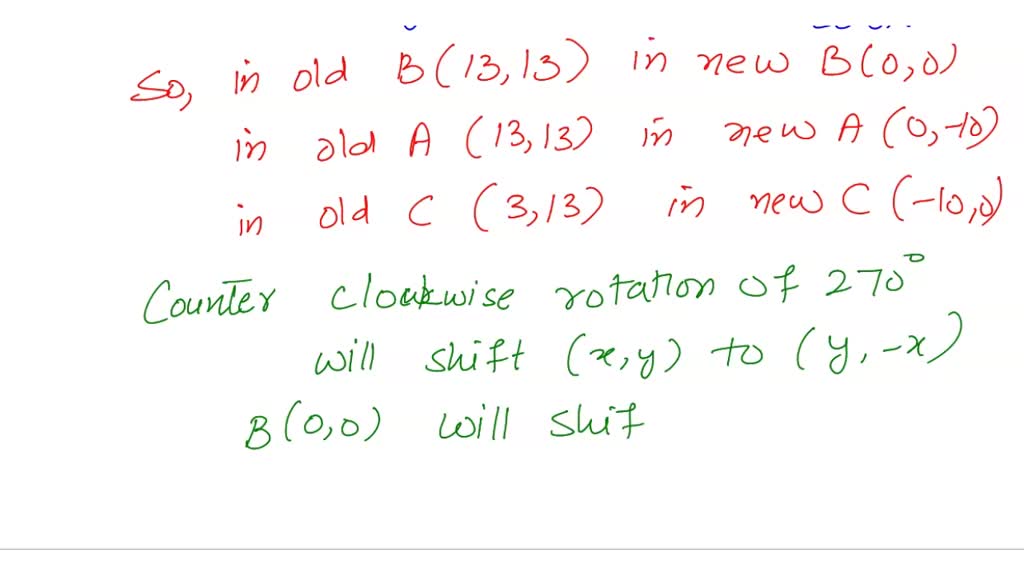 So, in old B(13,13) in new B(0,0)
in old A (13,13) in new A (0,-10)
in old C (3,13) in new C (-10,0)
Counter clockwise rotation of 270°
will shift (x,y) to (y,-x)
B(0,0) will shif